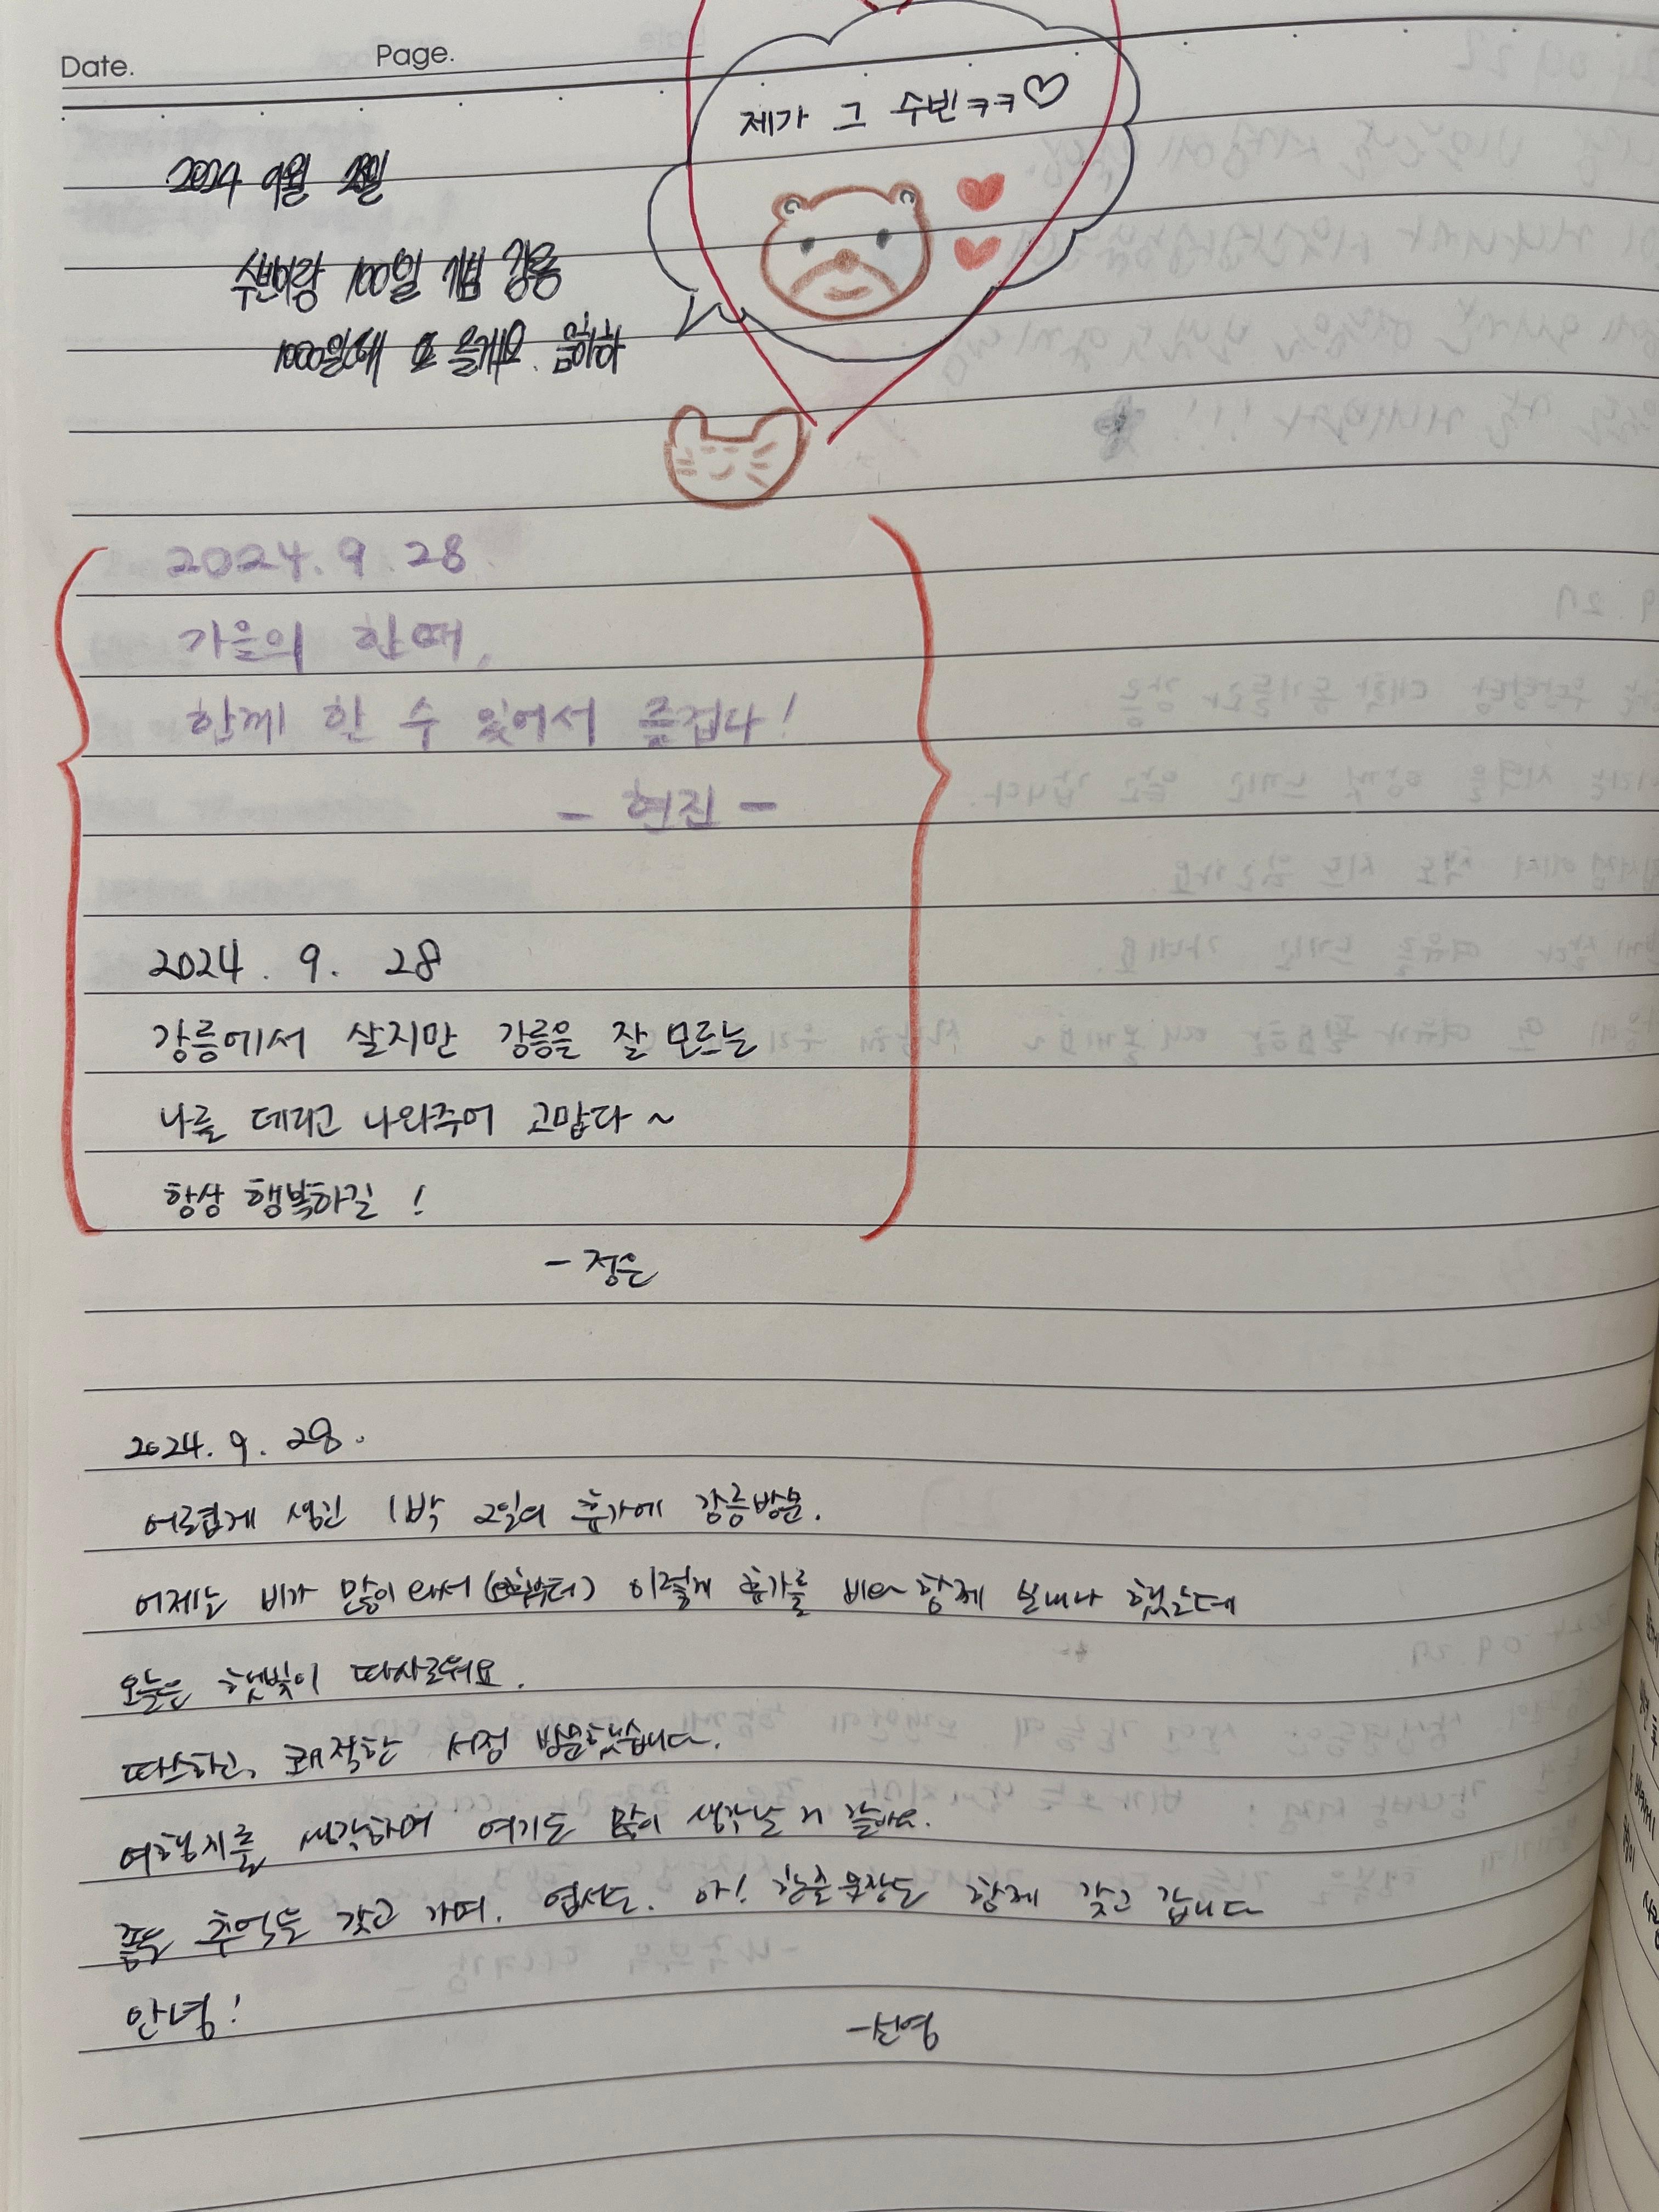 Date. Page.
제가 그 수빈ㅋㅋ♡
2024 9월 28일
수빈이랑 100일 기념 강릉
1000일때 또 올게요. 음하하
2024. 9. 28
가을의 한때,
함께 할 수 있어서 즐겁다!
- 현진 -
2024. 9. 28
강릉에서 살지만 강릉을 잘 모르는
나를 데리고 나와주어 고맙다~
항상 행복하길!
- 정은
2024. 9. 28.
어렵게 생긴 1박 2일의 휴가에 강릉방문.
어제는 비가 많이 와서 이렇게 휴가를 비와 함께 보내나 했는데
오늘은 햇빛이 따사로워요.
따스하고, 쾌적한 서점 방문했습니다.
여행지를 생각하며 여기도 많이 생각날 거 같아요.
좋은 추억을 갖고 가며, 엽서도. 아! 함께 갖고 갑니다
안녕!
-선영